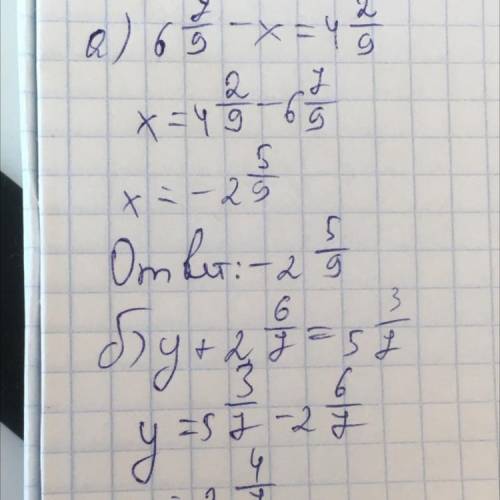 а) 6 7/9 - x = 4 2/9
x = 4 2/9 - 6 7/9
x = - 2 5/9
Ответ: - 2 5/9
б) y + 2 6/7 = 5 3/7
y = 5 3/7 - 2 6/7